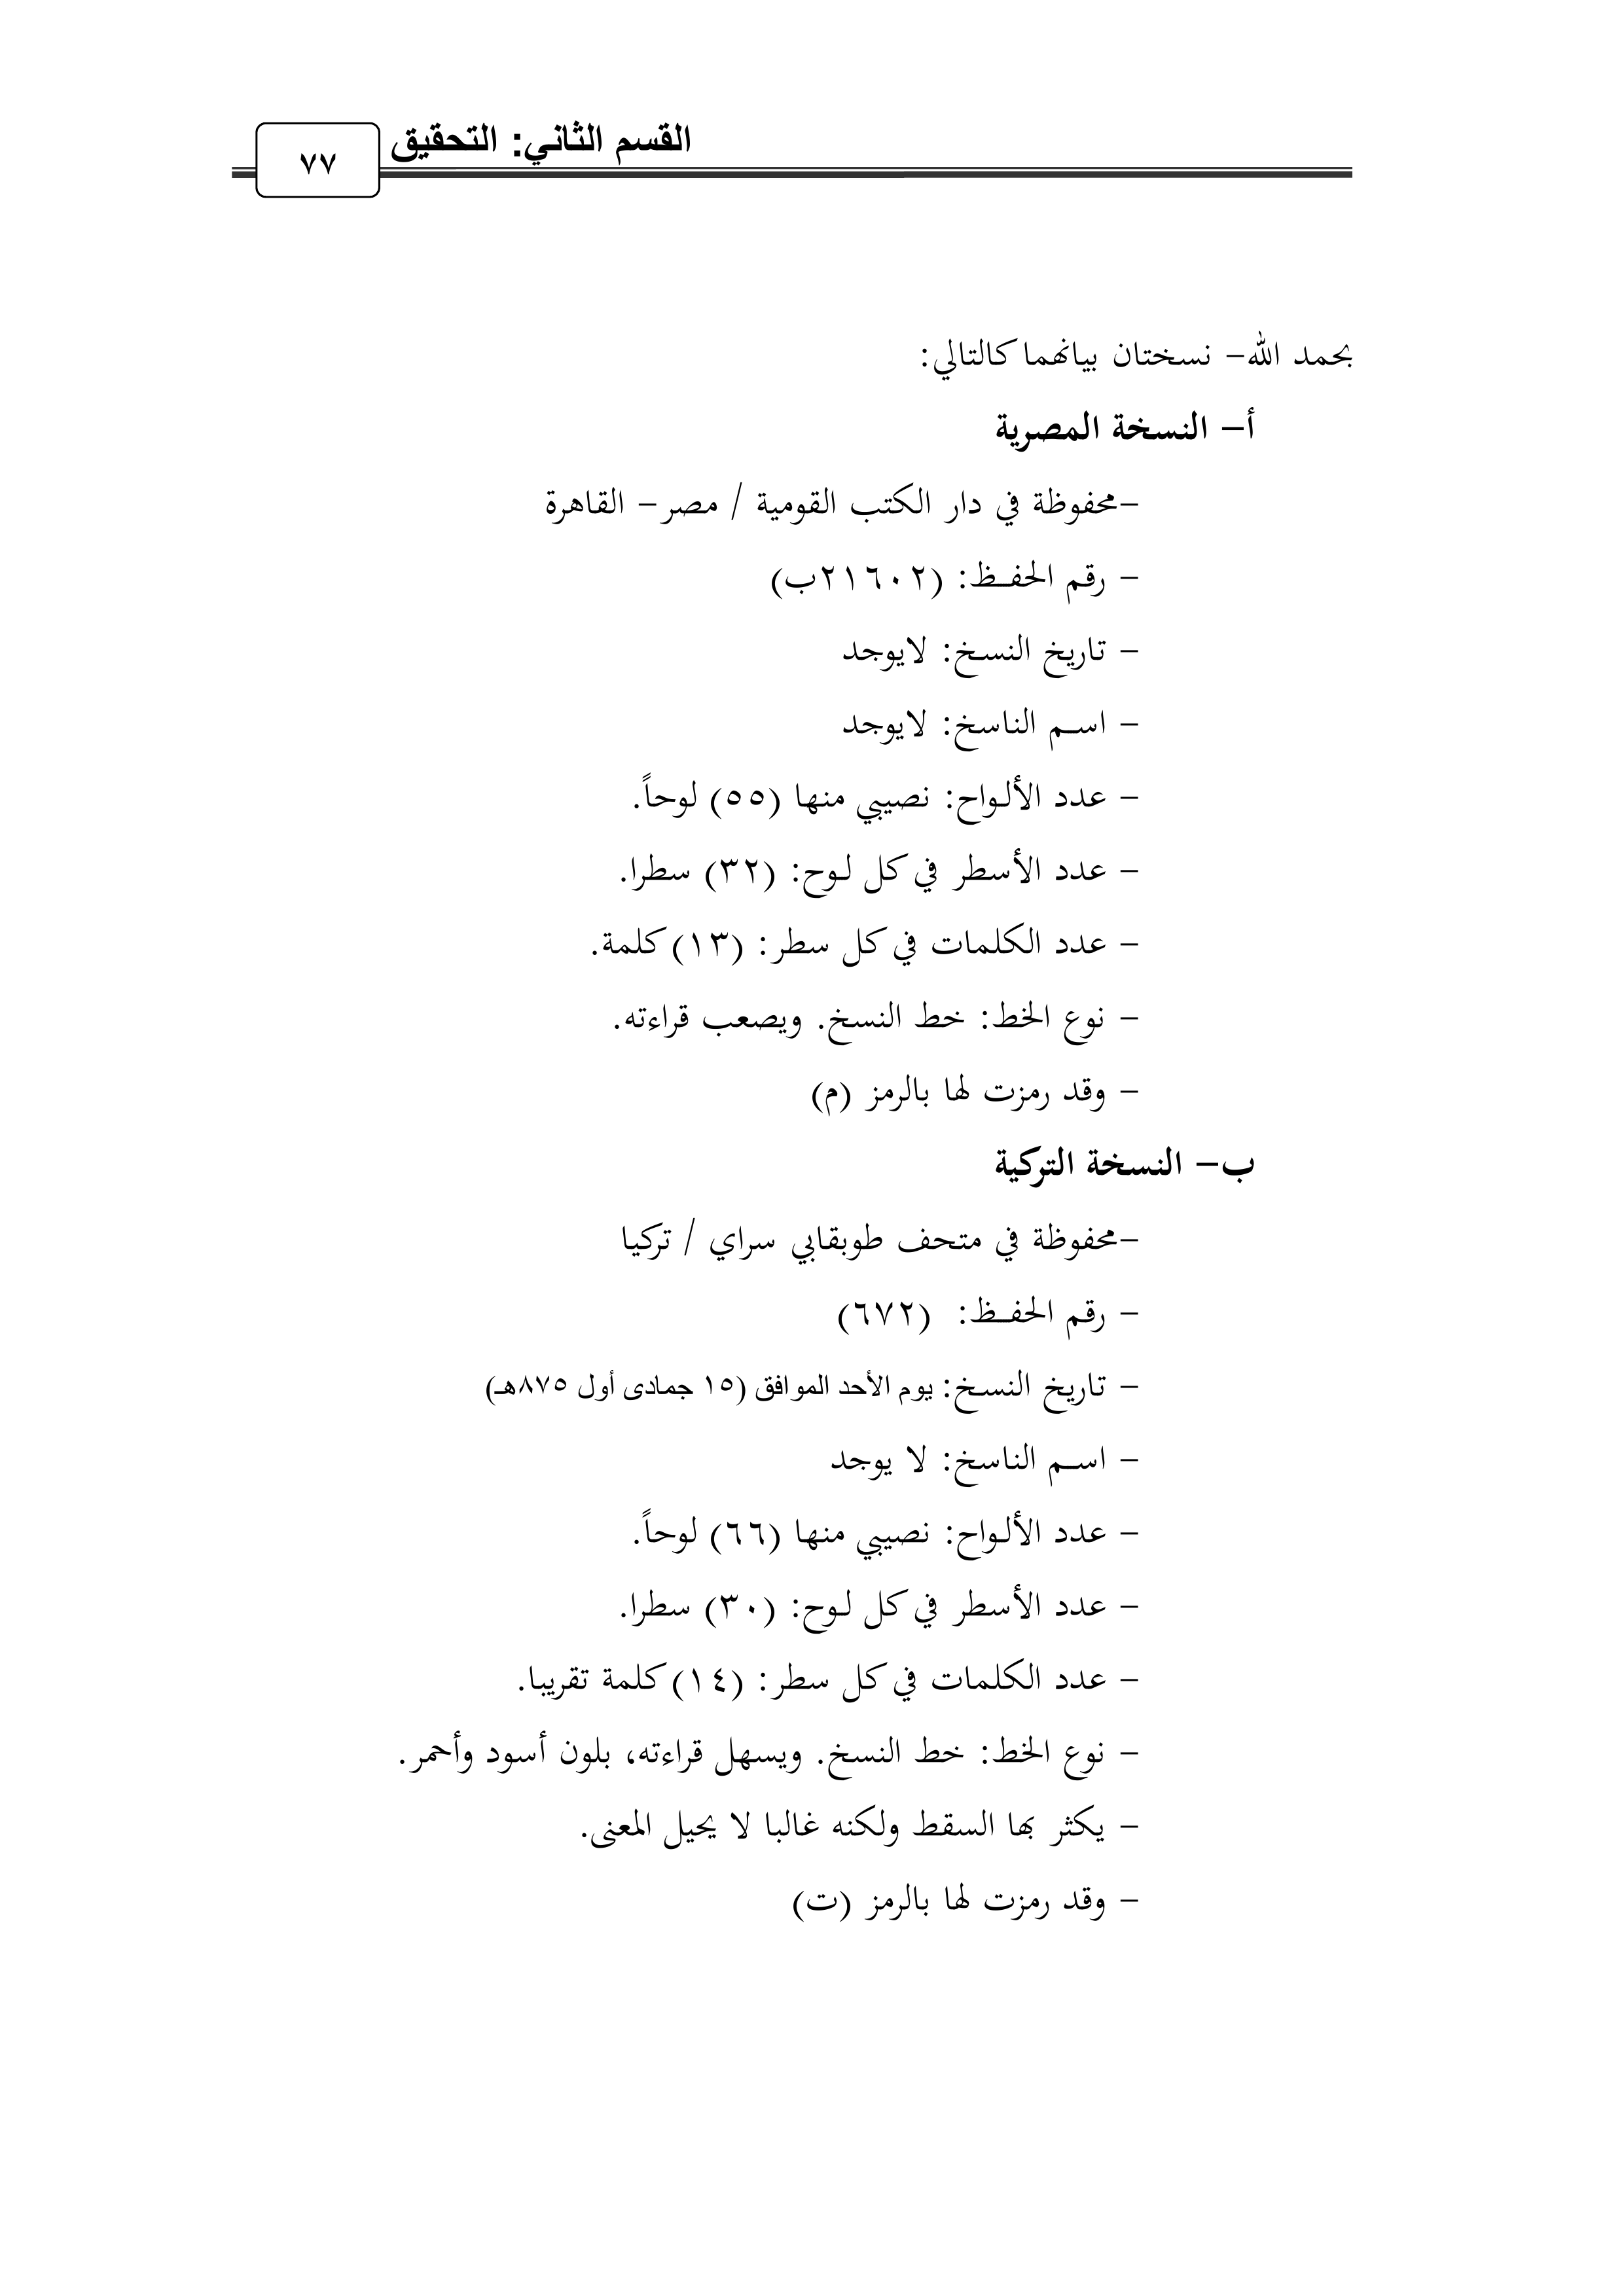 القسم الثاني: التحقيق
٧٧
بحمد الله- نسختان بيانهما كالتالي:
أ- النسخة المصرية
-محفوظة في دار الكتب القومية / مصر- القاهرة
- رقم الحفـظ: (٢١٦٠٢ب)
- تاريخ النسخ: لايوجد
- اسـم الناسخ: لايوجد
- عدد الألـواح: نصيبي منها (٥٥) لوحاً.
- عدد الأسطر في كل لـوح: (٣٢) سطرا.
- عدد الكلمات في كل سطر: (١٣) كلمة.
- نوع الخط: خط النسخ. ويصعب قراءته.
- وقد رمزت لها بالرمز (م)
ب- النسخة التركية
-محفوظة في متحف طوبقابي سراي / تركيا
- رقم الحفـظ: (٦٧٢)
- تاريخ النسخ: يوم الأحد الموافق (١٥ جمادى أول ٨٧٥هـ)
- اسـم الناسخ: لا يوجد
- عدد الألـواح: نصيبي منها (٦٦) لوحاً.
- عدد الأسطر في كل لـوح: (٣٠) سطرا.
- عدد الكلمات في كل سطر: (١٤) كلمة تقريبا.
- نوع الخط: خط النسخ. ويسهل قراءته، بلون أسود وأحمر.
- يكثر بها السقط ولكنه غالبا لا يحيل المعنى.
- وقد رمزت لها بالرمز (ت)